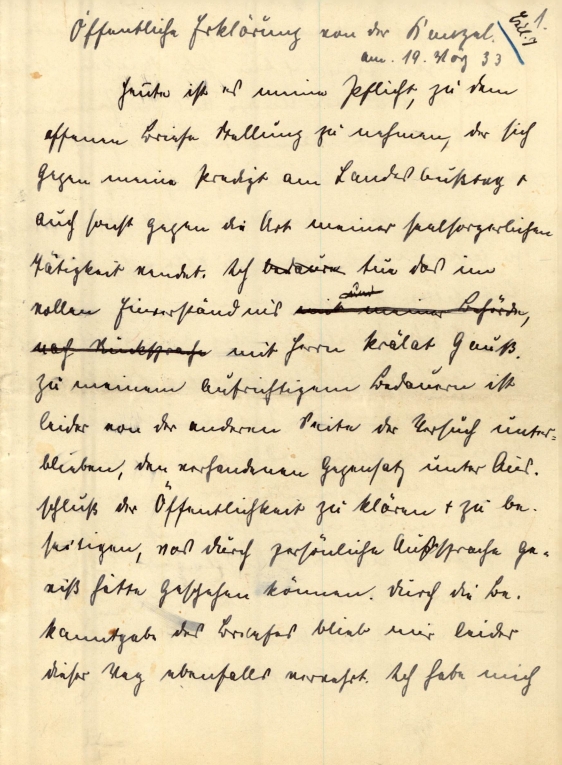 1.
Öffentliche Erklärung von der Kanzel.
am. 19. März 33
Heute ist es meine Pflicht, zu dem
offenen Briefe Stellung zu nehmen, der sich
gegen meine Predigt am Landesbußtag +
auch sonst gegen die Art meiner seelsorgerlichen
Tätigkeit wendet. Ich bedaure tue das im
vollen Einverständnis und mit meiner Behörde,
nach Rücksprache mit Herrn Prälat Gauß.
Zu meinem aufrichtigem Bedauern ist
leider von der anderen Seite der Versuch unter-
blieben, den vorhandenen Gegensatz unter Aus-
schluß der Öffentlichkeit zu klären + zu be-
seitigen, was durch persönliche Aussprache ge-
wiß hätte geschehen können. Durch die Be-
kanntgabe des Briefes blieb mir leider
dieser Weg ebenfalls verwehrt. Ich habe mich